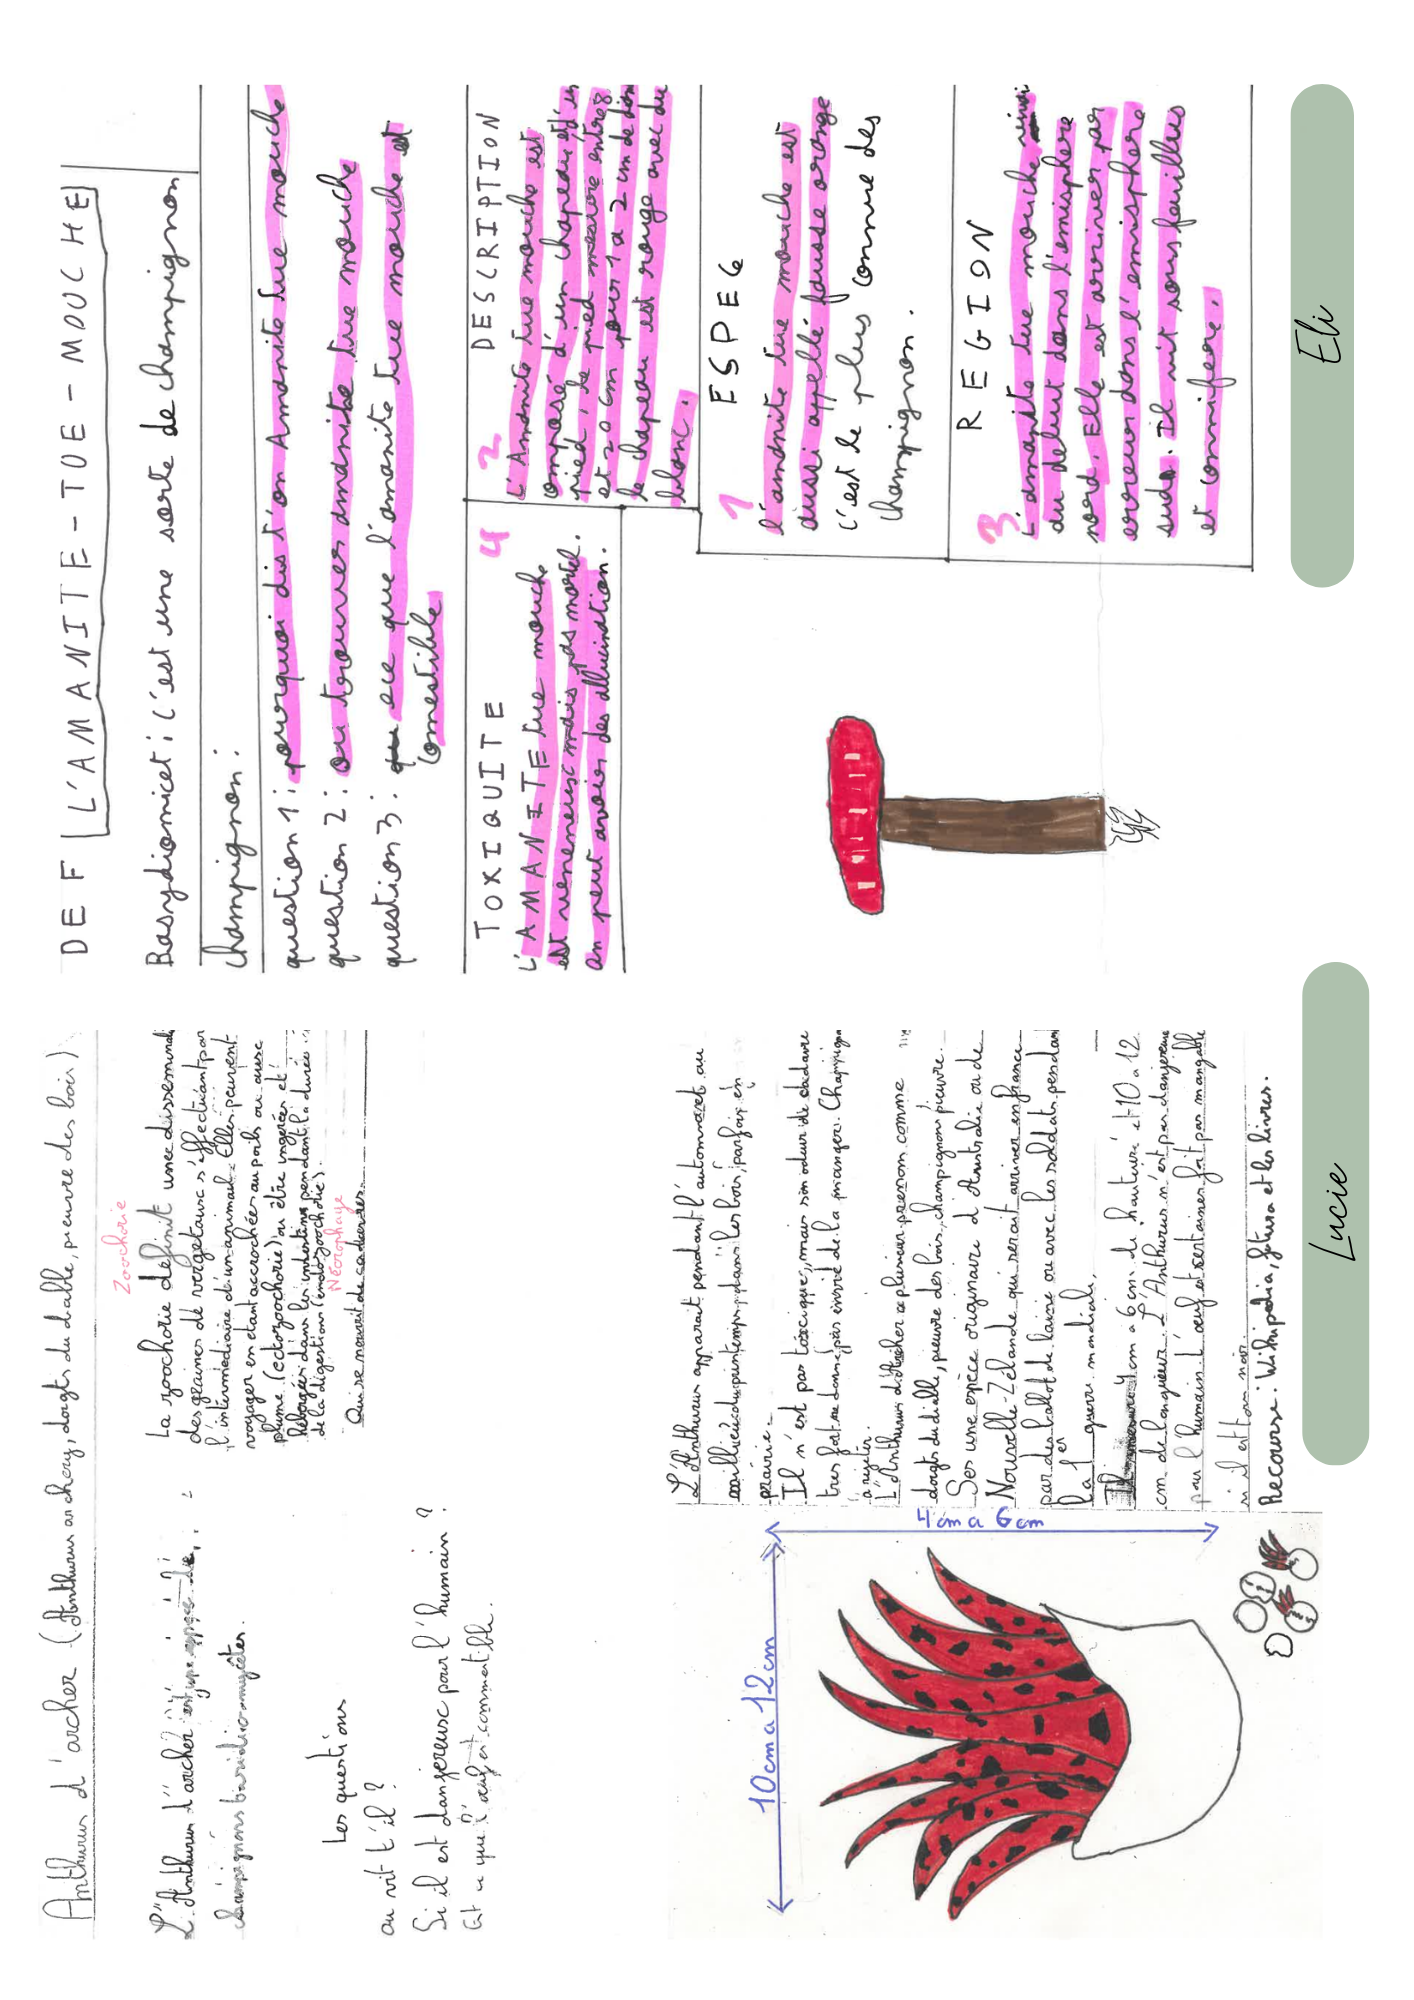 Anthurus d'archer (Anthurus archery, doigts du diable, pieuvre des bois)
L'Anthurus d'archer est une espèce de
champignons basidiomycètes.
Les questions
ou vit t'il ?
Si il est dangereux pour l'humain ?
Est ce que l'œuf est commestible.
Zoochorie
La zoochorie définit une dissemina
des graines de vegetaux s'effectuant par
l'intermediaire d'un animal. Elles peuvent
voyager en etant accrochées au poils ou aux
plume (ectozoochorie) ou être ingerées et
héberger dans les intestins pendant la durée
de la digestion (endozoochorie).
Nécrophage
Qui se nourrit de cadavres.
10cm a 12cm
4cm a 6cm
L'Anthurus apparait pendant l'automne et au
millieu du printemps dans les bois, parfois en
prairie.
Il n'est pas toxique, mais son odeur de cadavre
tres fort ne donne pas envie de la manger. Champignon
a rejeter.
L'Anthurus d'Archer a plusieur prenom comme
doigts du diable, pieuvre des bois, champignon pieuvre.
Ses une espèce originaire d'Australie ou de
Nouvelle-Zélande qui serait arriver en france
par des ballot de laine ou avec les soldats pendan
la 1er guerre mondiale.
4 cm a 6 cm de hauteur et 10 a 12
cm de longueur. L'Anthurus n'est pas danjereuse
pour l'humain. L'œuf et certaines fait pas mangable
si il est ton noir.
Recourse: Wikipedia, futura et les livres.
Lucie
DEF L'AMANITE-TUE-MOUCHE
Basydiomicet : C'est une sorte de champignon
champignon :
question 1 : pourquoi dis t'on Amanite tue mouche
question 2 : ou trouver amanite tue mouche
question 3 : ece que l'amanite tue mouche est
comestible
TOXIQUITE 4
L'AMANITE tue mouche
est veneneux mais pas mortel.
on peut avoier des allucination.
2 DESCRIPTION
L'Amanite tue mouche est
composé d'un chapeau et d'un
pied, le pied mesure entre 8
et 20 cm pour 1 a 2 cm de dia
le chapeau est rouge avec du
blanc.
1 ESPEC
l'amanite tue mouche est
aussi appellé fausse oronge
c'est le plus connue des
champignon.
3 REGION
L'amanite tue mouche
au debut dans l'emisphere
nord. Elle est arriver par
erreur dans l'emisphere
sud. Il vit sous feuillus
et connifere.
Eli